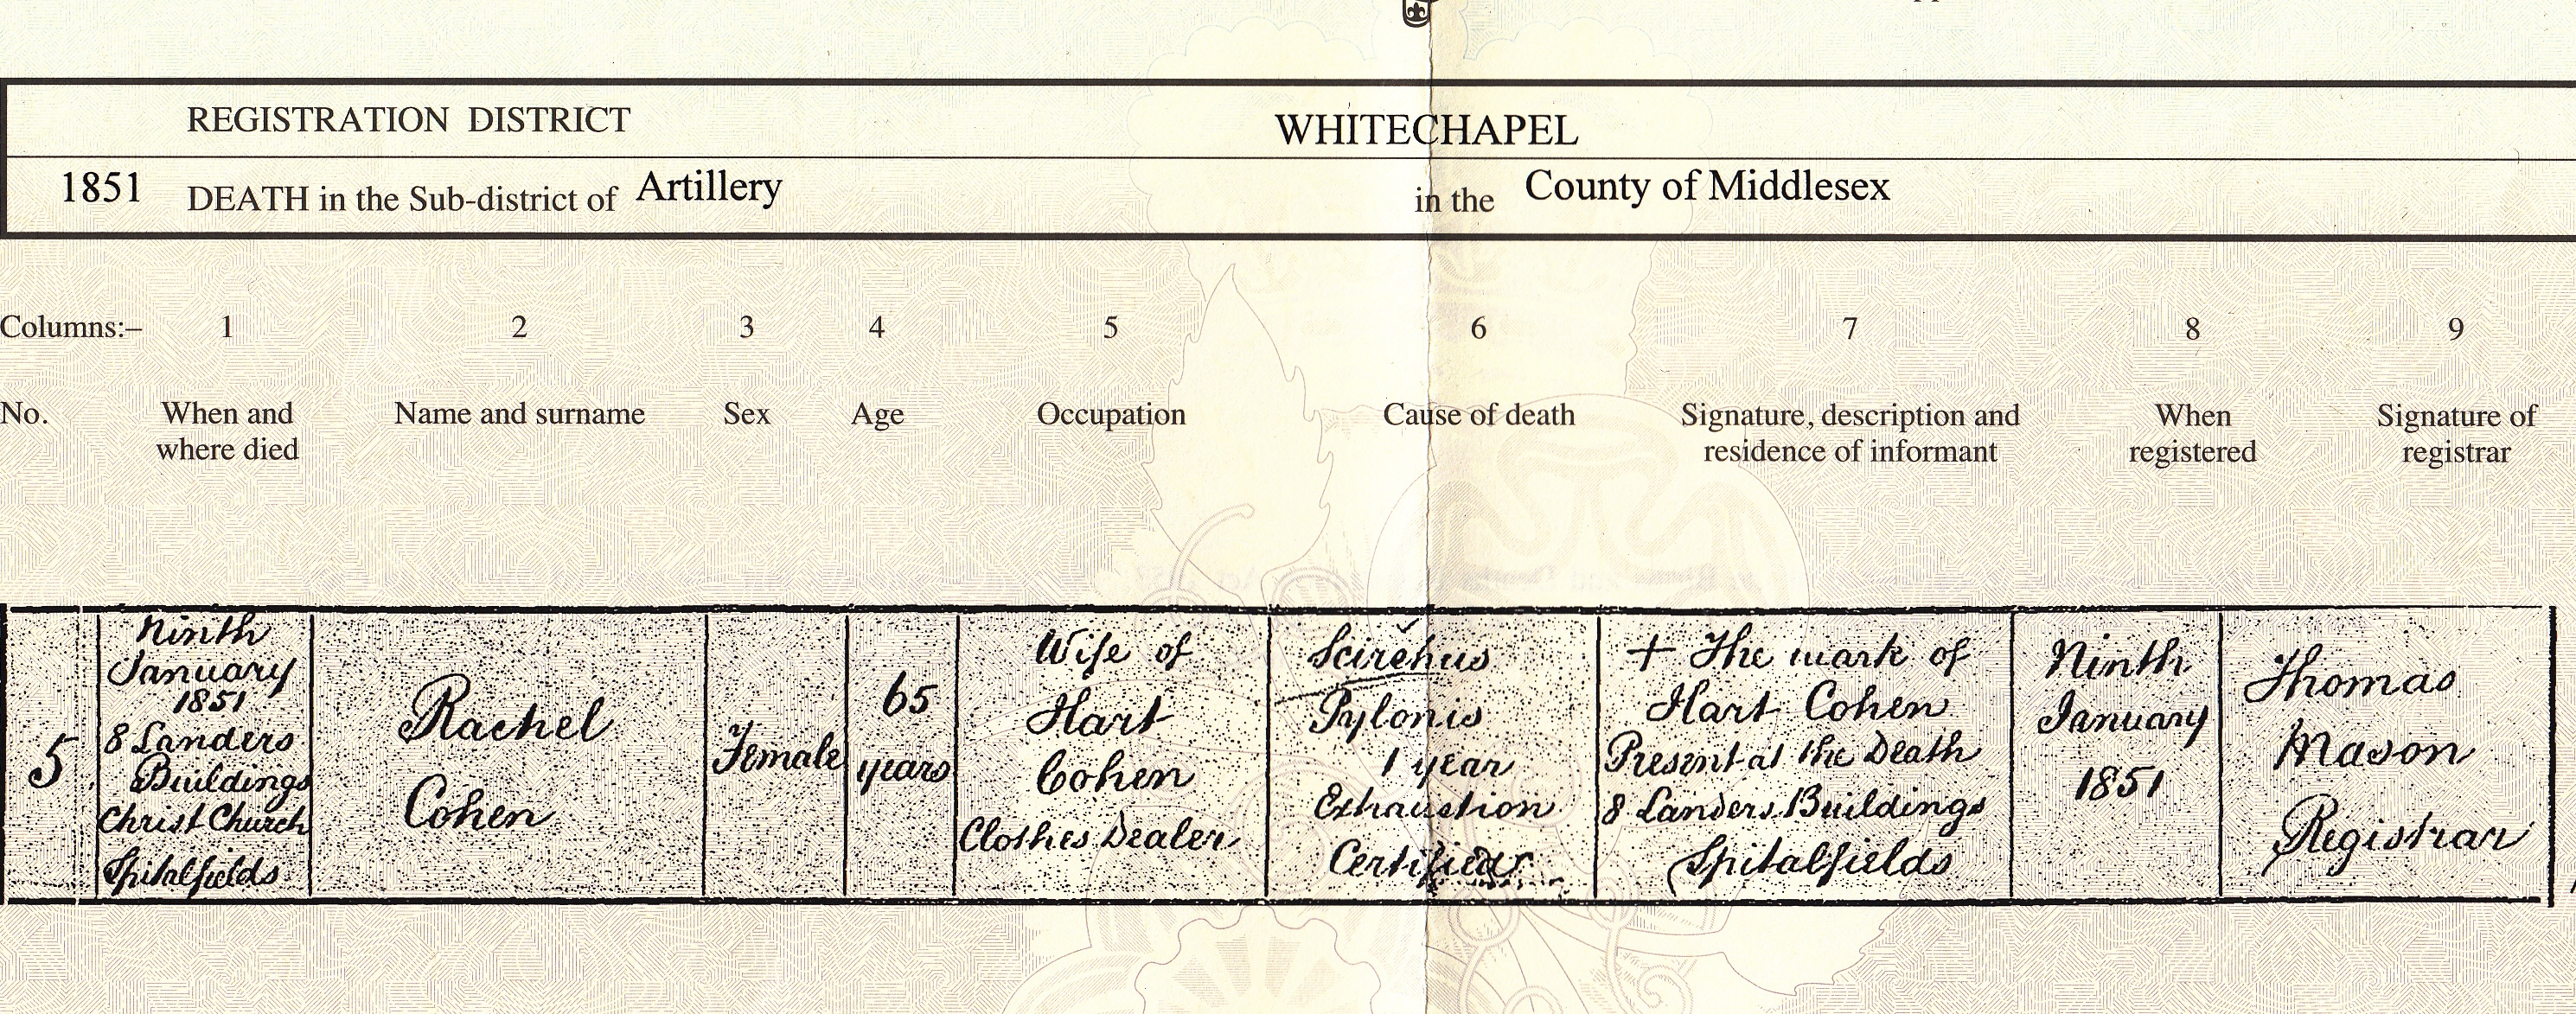 REGISTRATION DISTRICT WHITECHAPEL
1851 DEATH in the Sub-district of Artillery in the County of Middlesex
Columns:– 1 2 3 4 5 6 7 8 9
No.
When and
where died
Name and surname
Sex
Age
Occupation
Cause of death
Signature, description and
residence of informant
When
registered
Signature of
registrar
5
Ninth
January
1851
8 Landers
Buildings
Christ Church
Spitalfields
Rachel
Cohen
Female
65
years
Wife of
Hart
Cohen
Clothes Dealer
Scirrhus
Pylonis
1 year
Exhaustion
Certified
+ The mark of
Hart Cohen
Present at the Death
8 Landers Buildings
Spitalfields
Ninth
January
1851
Thomas
Mason
Registrar